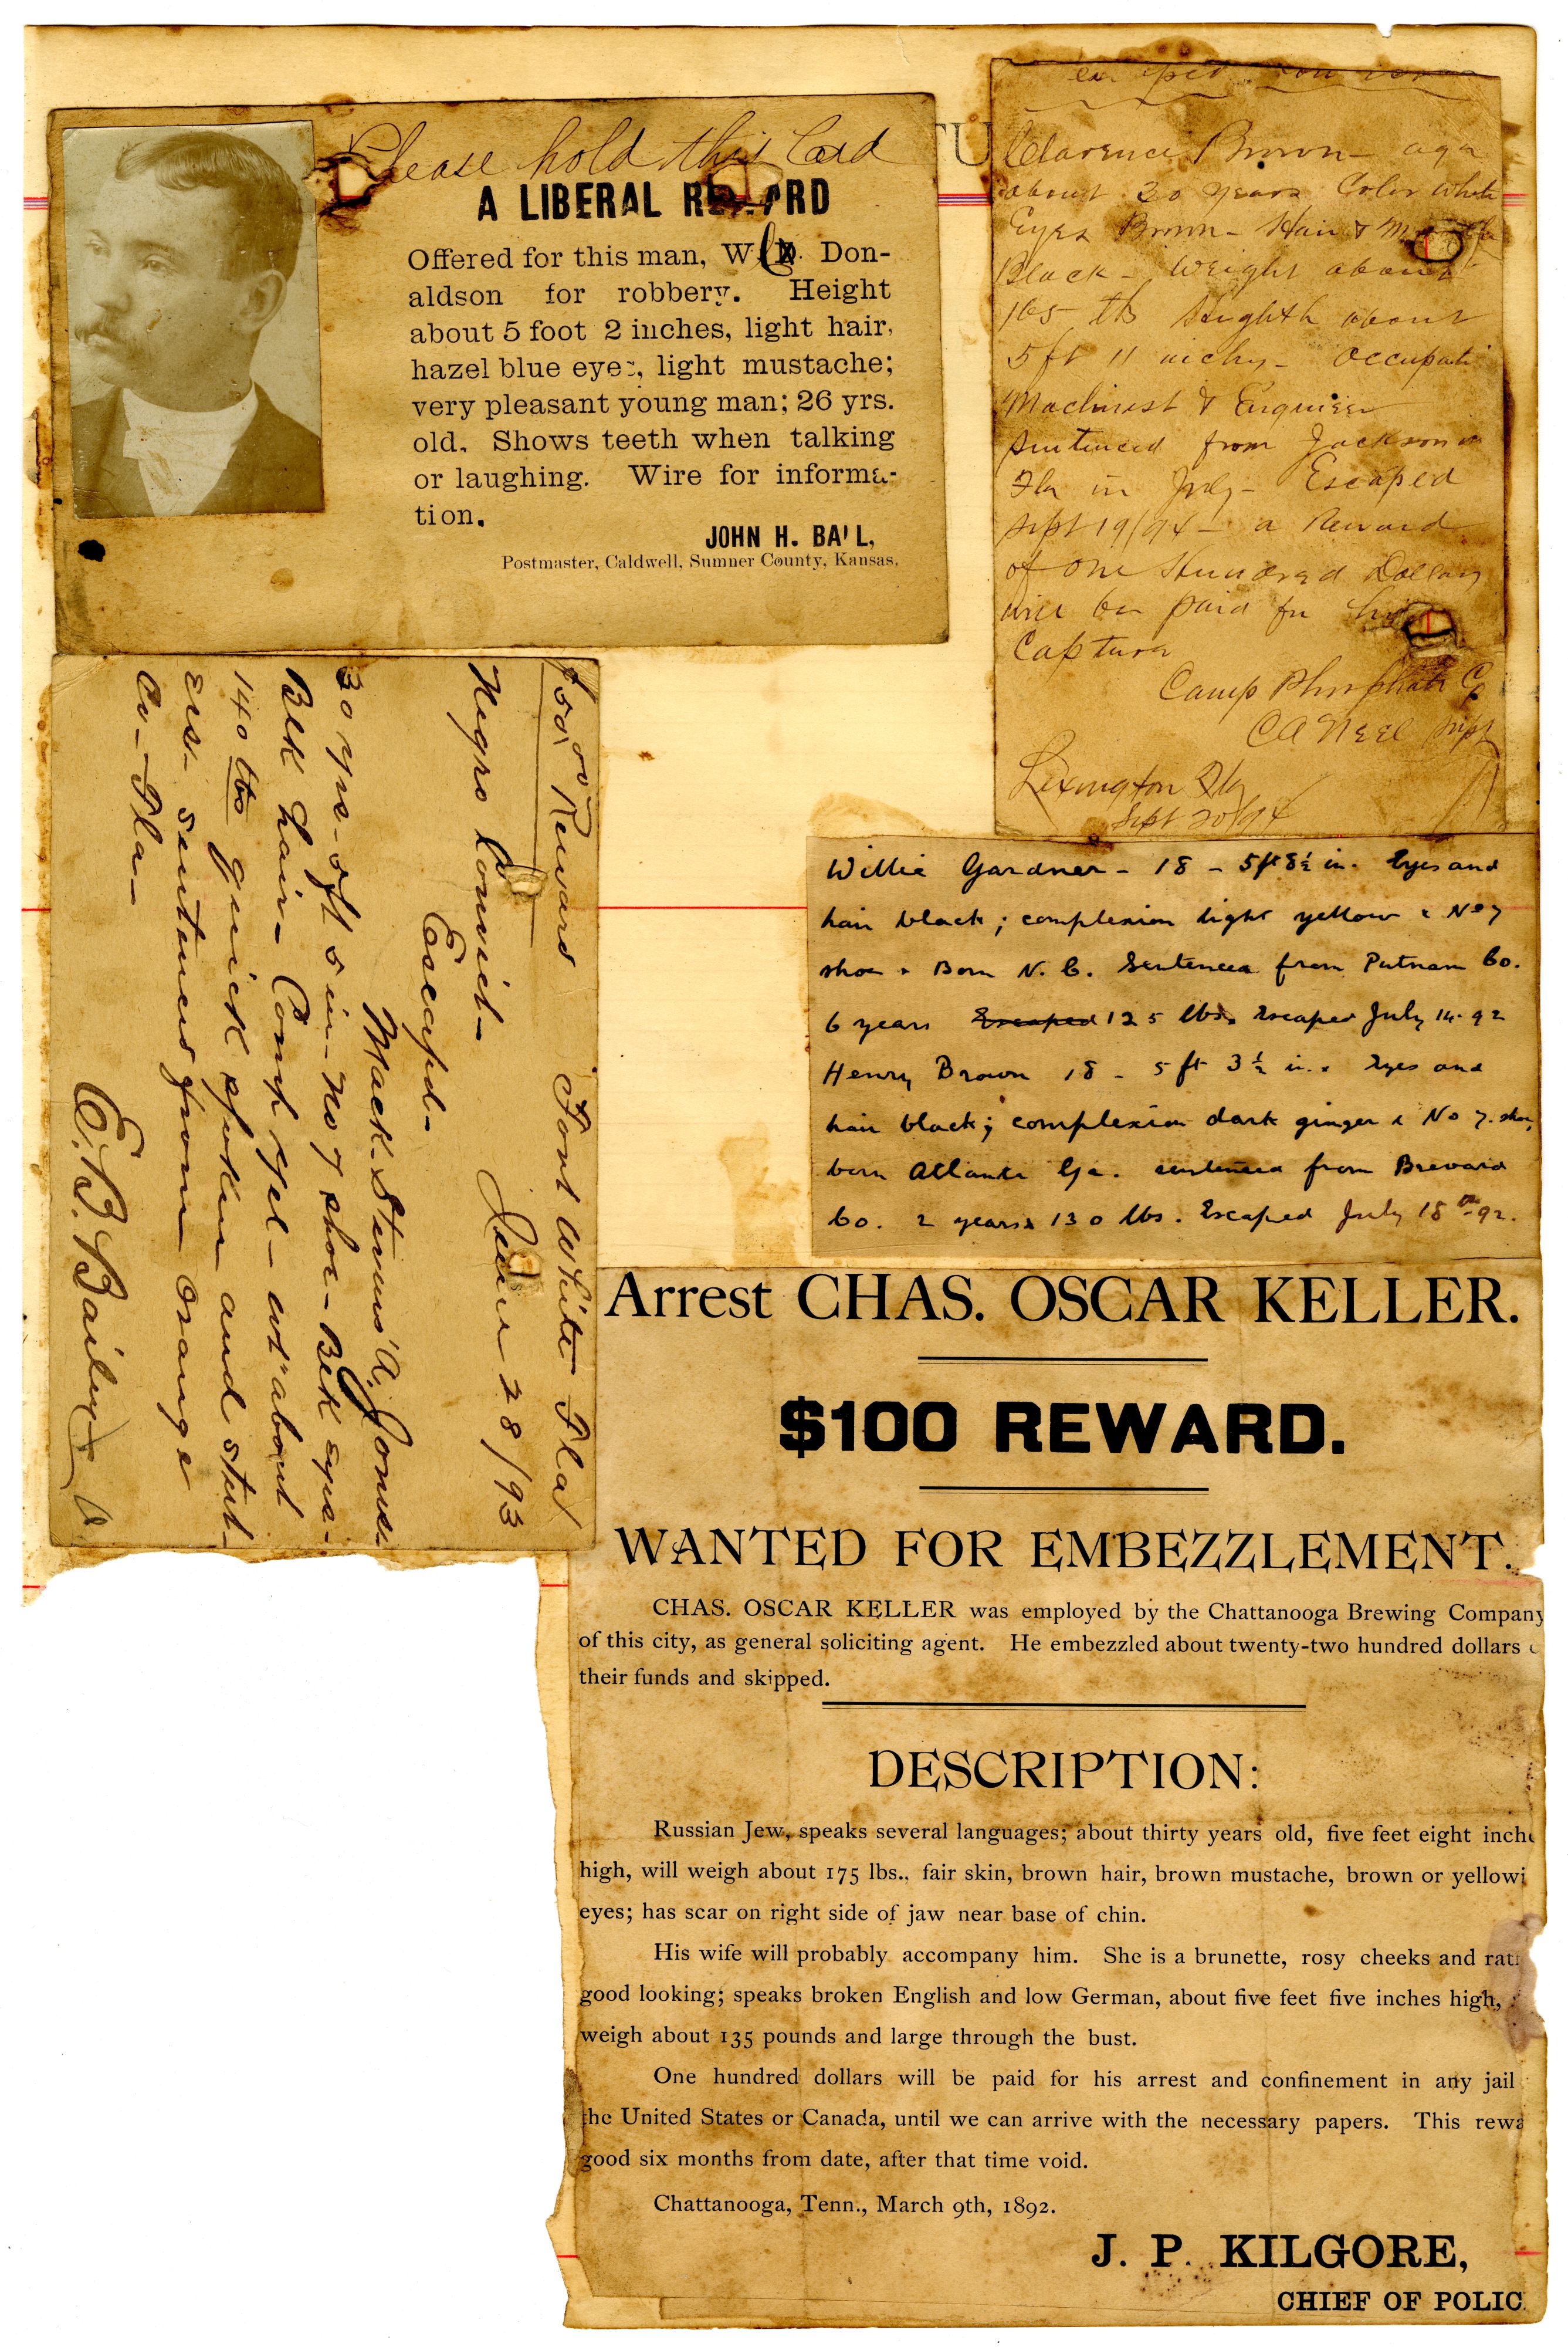 Please hold this Card
A LIBERAL REWARD
Offered for this man, W. Don-
aldson for robbery. Height
about 5 foot 2 inches, light hair,
hazel blue eyes, light mustache;
very pleasant young man; 26 yrs.
old. Shows teeth when talking
or laughing. Wire for informa-
tion.
JOHN H. BALL,
Postmaster, Caldwell, Sumner County, Kansas.
TU
Clarence Brown - age
about 30 years Color White
Eyes Brown - Hair &
Black - Weight about
165 lbs Heighth about
5 ft 11 inches - Occupati
Machinist & Engineer
Sentenced from Jackson
Fla in July - Escaped
Sept 19/94 - a Reward
of One Hundred Dollars
will be paid for his
Capture
Camp Phosphate Co
CA Neel Supt
Lexington Fla
Sept 20/94
$50.00 Reward Fort White Fla
June 28/93
Negro Convict -
Escaped -
Mack Stevens A. Jones -
30 yrs - 5ft 5 in - No 7 shoe - Blk eyes -
Blk hair - Comp yel - wt about
140 lbs quick spoken and stut-
ers - sentenced from Orange
Co - Fla -
E. B. Bailey & Co
Willie Gardner - 18 - 5ft 8½ in. Eyes and
hair black; complexion light yellow & No 7
shoe. Born N. C. Sentenced from Putnam Co.
6 years Escaped 125 lbs. Escaped July 14-92
Henry Brown 18 - 5 ft 3½ in. Eyes and
hair black; complexion dark ginger & No 7. shoe,
born Atlanta Ga. sentenced from Brevard
Co. 2 years & 130 lbs. Escaped July 18th-92.
Arrest CHAS. OSCAR KELLER.
$100 REWARD.
WANTED FOR EMBEZZLEMENT.
CHAS. OSCAR KELLER was employed by the Chattanooga Brewing Company
of this city, as general soliciting agent. He embezzled about twenty-two hundred dollars
their funds and skipped.
DESCRIPTION:
Russian Jew, speaks several languages; about thirty years old, five feet eight inche
high, will weigh about 175 lbs., fair skin, brown hair, brown mustache, brown or yellowi
eyes; has scar on right side of jaw near base of chin.
His wife will probably accompany him. She is a brunette, rosy cheeks and rat
good looking; speaks broken English and low German, about five feet five inches high,
weigh about 135 pounds and large through the bust.
One hundred dollars will be paid for his arrest and confinement in any jail
the United States or Canada, until we can arrive with the necessary papers. This rewa
good six months from date, after that time void.
Chattanooga, Tenn., March 9th, 1892.
J. P. KILGORE,
CHIEF OF POLIC